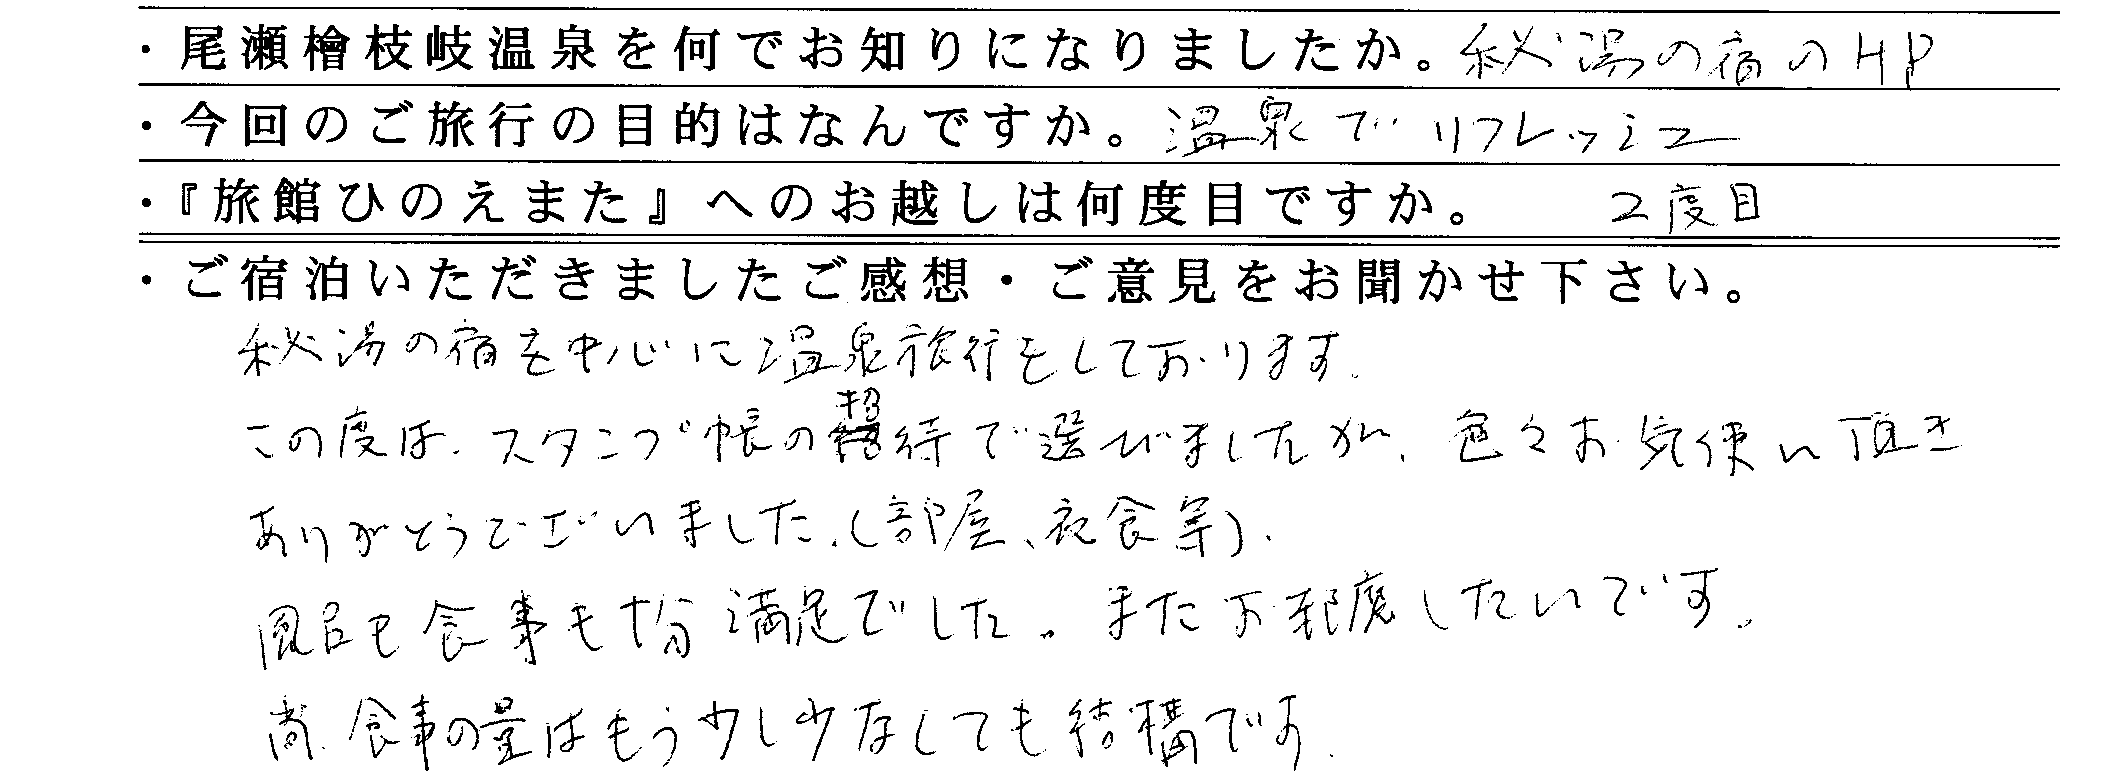 ・尾瀬檜枝岐温泉を何でお知りになりましたか。秘湯の宿のHP
・今回のご旅行の目的はなんですか。温泉でリフレッシュ
・『旅館ひのえまた』へのお越しは何度目ですか。 2度目
・ご宿泊いただきましたご感想・ご意見をお聞かせ下さい。
秘湯の宿を中心に温泉旅行をしております。
この度は、スタンプ帳の招待で選びましたが、色々お気使い頂き
ありがとうございました。(部屋、衣食等)。
風呂も食事も十分満足でした。またお邪魔したいです。
尚、食事の量はもう少し少なしても結構です。